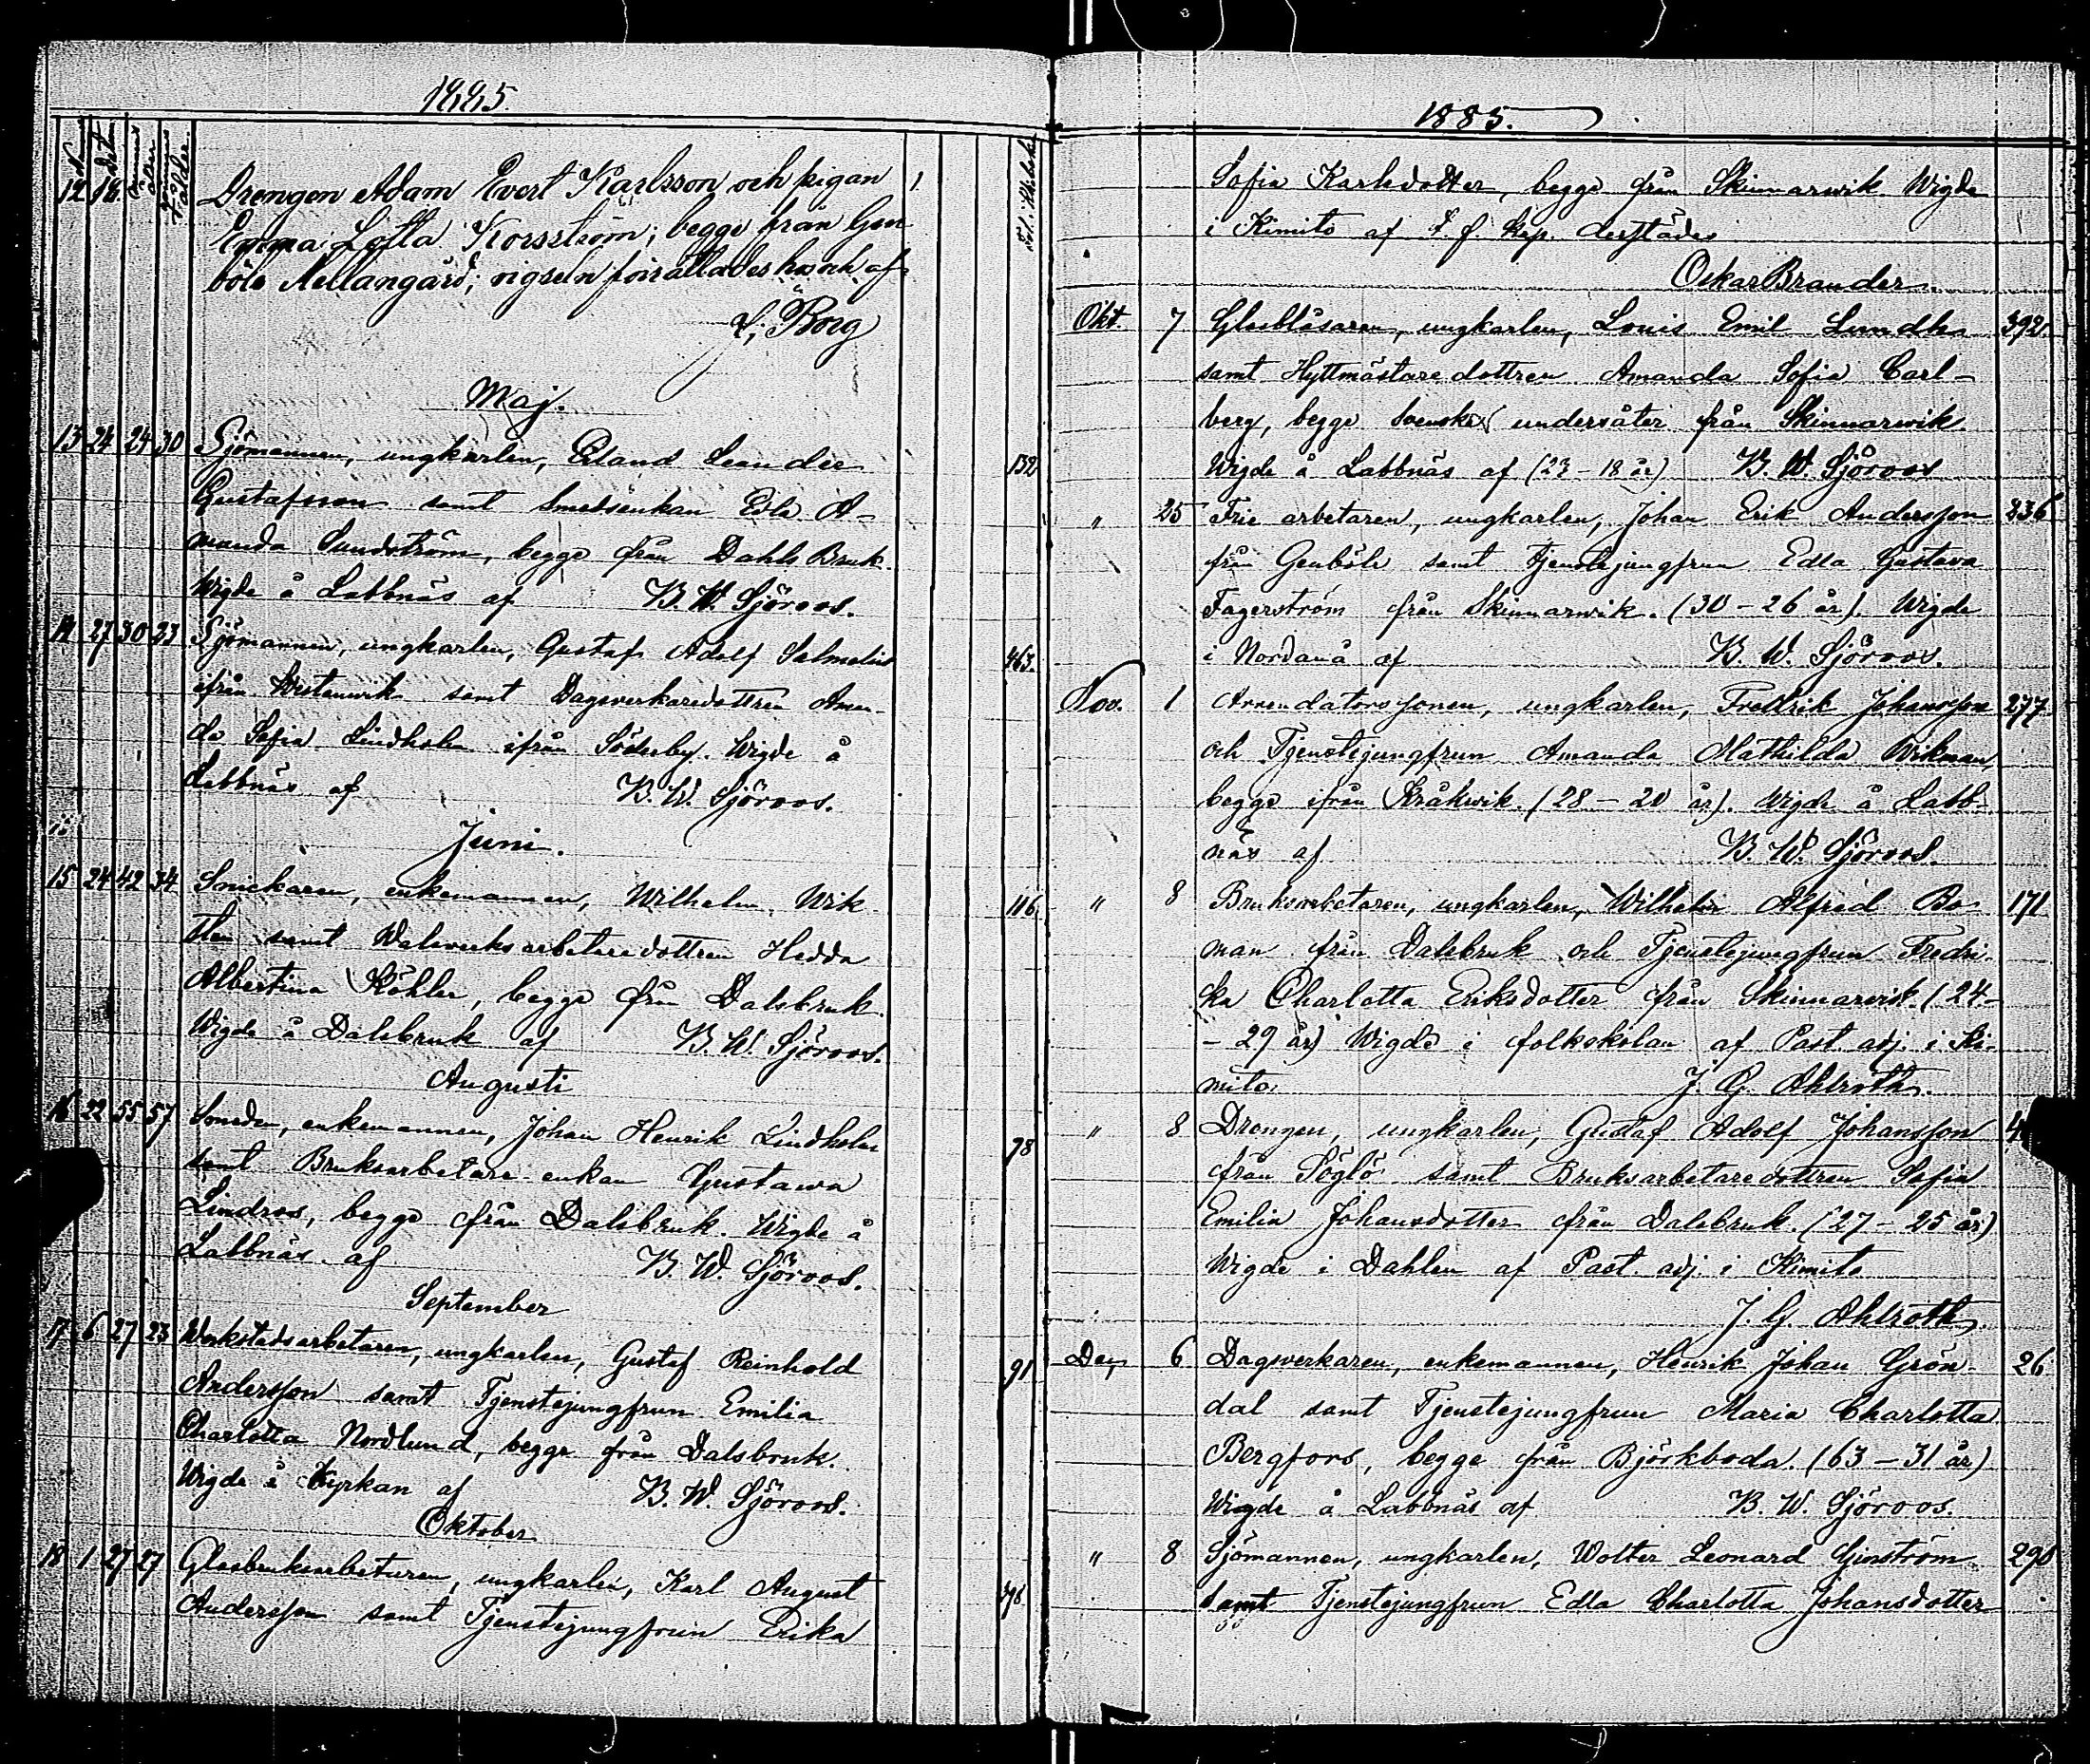 1885.
12 18 Drengen Adam Evert Karlsson och pigan 1
Emma Lotta Korsström; begge från Gen
böle Mellangård; vigseln förrättades hos och af
L. Borg
Maj.
13 24 24 30 Sjömannen, ungkarlen, Erland Leander 132
Gustafsson samt Smedsenkan Edla A-
manda Sundström, begge från Dahls Bruk.
Wigde å Labbnäs af B. W. Sjöroos.
14 27 30 23 Sjömannen, ungkarlen, Gustaf Adolf Salmelin 463.
ifrån Westanwik samt Dagsverkaredottren Aman-
da Sofia Lindholm ifrån Söderby. Wigde å
Labbnäs af B. W. Sjöroos.
Juni.
15 24 42 34 Snickaren, enkemannen, Wilhelm Wik 116
samt Walsverksarbetaredottren Hedda
Albertina Köhler, begge från Dalsbruk.
Wigde å Dalsbruk af B. W. Sjöroos.
Augusti
16 22 55 57 Smeden, enkemannen, Johan Henrik Lindholm 78
samt Bruksarbetare-enkan Gustawa
Lindroos, begge från Dalsbruk. Wigde å
Labbnäs af B. W. Sjöroos.
September
17 6 27 23 Werkstadsarbetaren, ungkarlen, Gustaf Reinhold 91
Andersson samt Tjenstejungfrun Emilia
Charlotta Nordlund, begge från Dalsbruk.
Wigde i Kyrkan af B. W. Sjöroos.
Oktober
18 1 27 27 Glasbruksarbetaren, ungkarlen, Karl August 398
Andersson samt Tjenstejungfrun Erika
1885.
Sofia Karlsdotter, begge från Skinnarwik Wigde
i Kimito af t. f. Kap. derstädes
Oskar Brander.
Okt. 7 Glasblåsaren, ungkarlen, Louis Emil Lundh 392
samt Hyttmästaredottren Amanda Sofia Carl-
berg, begge Svenska undersåter från Skinnarwik.
Wigde å Labbnäs af (23 - 18 år) B. W. Sjöroos
" 25 Frie arbetaren, ungkarlen, Johan Erik Andersson 336
från Genböle samt Tjenstejungfrun Edla Gustava
Fagerström från Skinnarwik. (30 - 26 år). Wigde
i Nordanå af B. W. Sjöroos.
Nov. 1 Arrendatorssonen, ungkarlen, Fredrik Johansson 277
och Tjenstejungfrun Amanda Mathilda Wikman,
begge ifrån Kråkwik. (28 - 20 år). Wigde å Labb-
näs af B. W. Sjöroos.
" 8 Bruksarbetaren, ungkarlen, Wilhelm Alfred Bo- 171
man från Dalsbruk och Tjenstejungfrun Fredri-
ka Charlotta Eriksdotter från Skinnarwik. (24-
- 29 år) Wigde i folkskolan af Past. adj. i Ki-
mito. J. G. Ahlroth.
" 8 Drengen, ungkarlen, Gustaf Adolf Johansson 4
från Söglö samt Bruksarbetaredottren Sofia
Emilia Johansdotter från Dalsbruk. (27 - 25 år)
Wigde i Dahlen af Past. adj. i Kimito
J. G. Ahlroth.
Dec. 6 Dagsverkaren, enkemannen, Henrik Johan Grön- 26
dal samt Tjenstejungfrun Maria Charlotta
Bergfors, begge från Björkboda. (63 - 31 år)
Wigde å Labbnäs af B. W. Sjöroos.
" 8 Sjömannen, ungkarlen, Wolter Leonard Ginström 290
samt Tjenstejungfrun Edla Charlotta Johansdotter